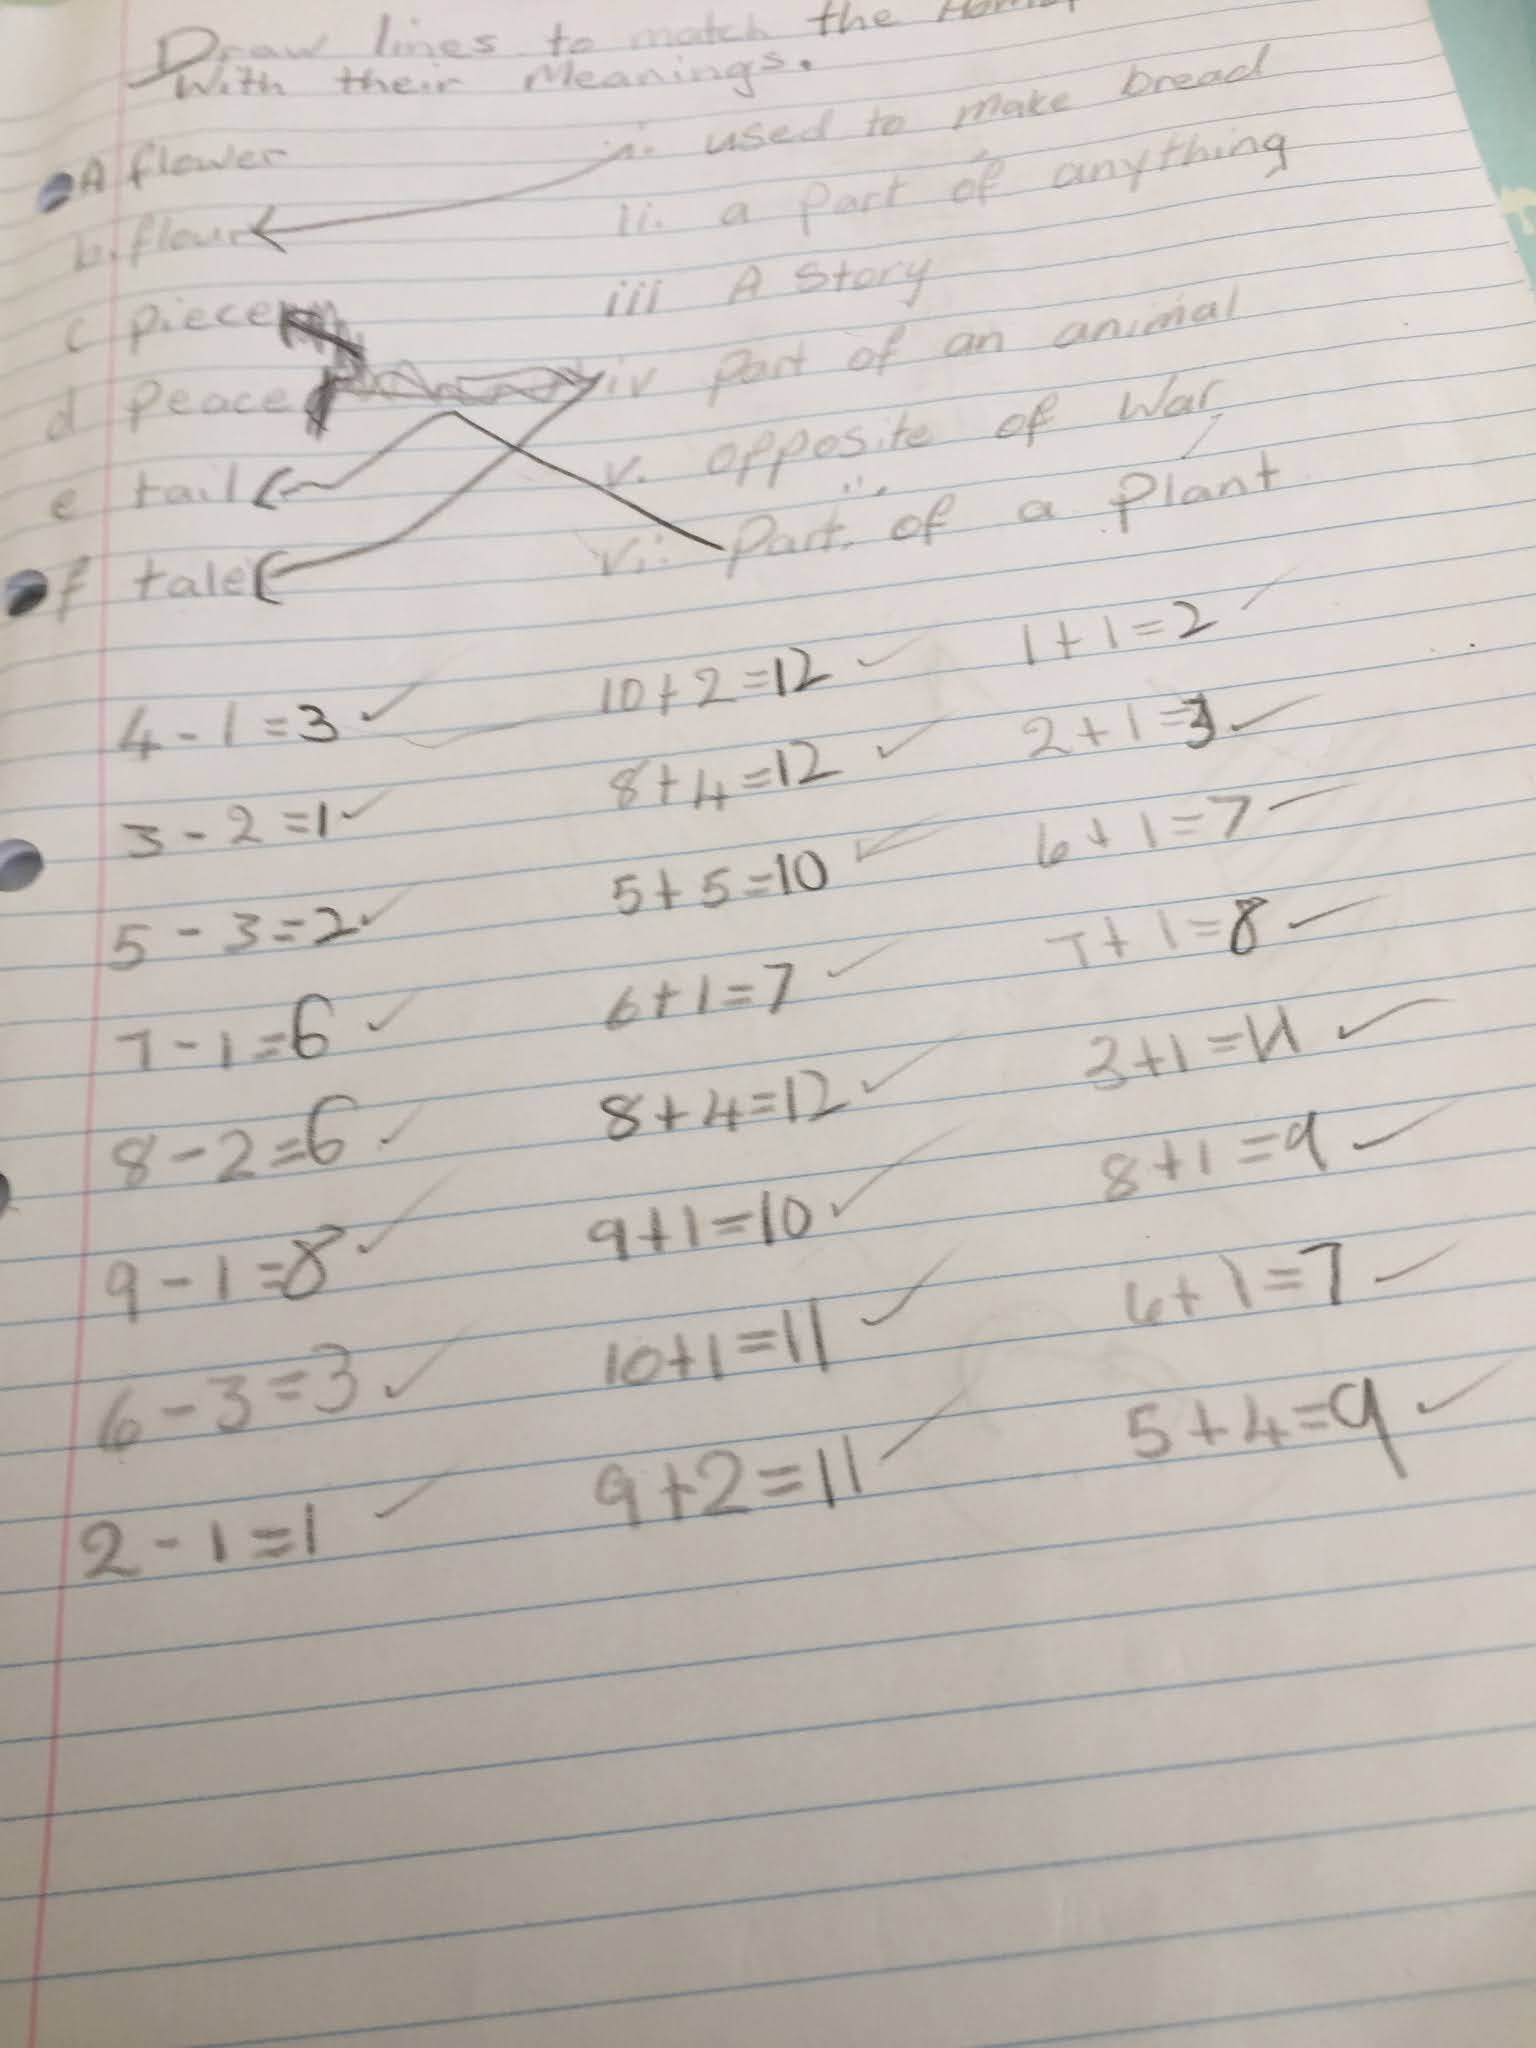 Draw lines to match the
With their Meanings.
A flower i. used to make bread
b. flour ii. a part of anything
c piece iii A Story
d peace iv part of an animal
e tail v. opposite of War
f tale vi. part of a plant
4 - 1 = 3 10 + 2 = 12 1 + 1 = 2
3 - 2 = 1 8 + 4 = 12 2 + 1 = 3
5 - 3 = 2 5 + 5 = 10 6 + 1 = 7
7 - 1 = 6 6 + 1 = 7 7 + 1 = 8
8 - 2 = 6 8 + 4 = 12 3 + 1 = 4
9 - 1 = 8 9 + 1 = 10 8 + 1 = 9
6 - 3 = 3 10 + 1 = 11 6 + 1 = 7
2 - 1 = 1 9 + 2 = 11 5 + 4 = 9